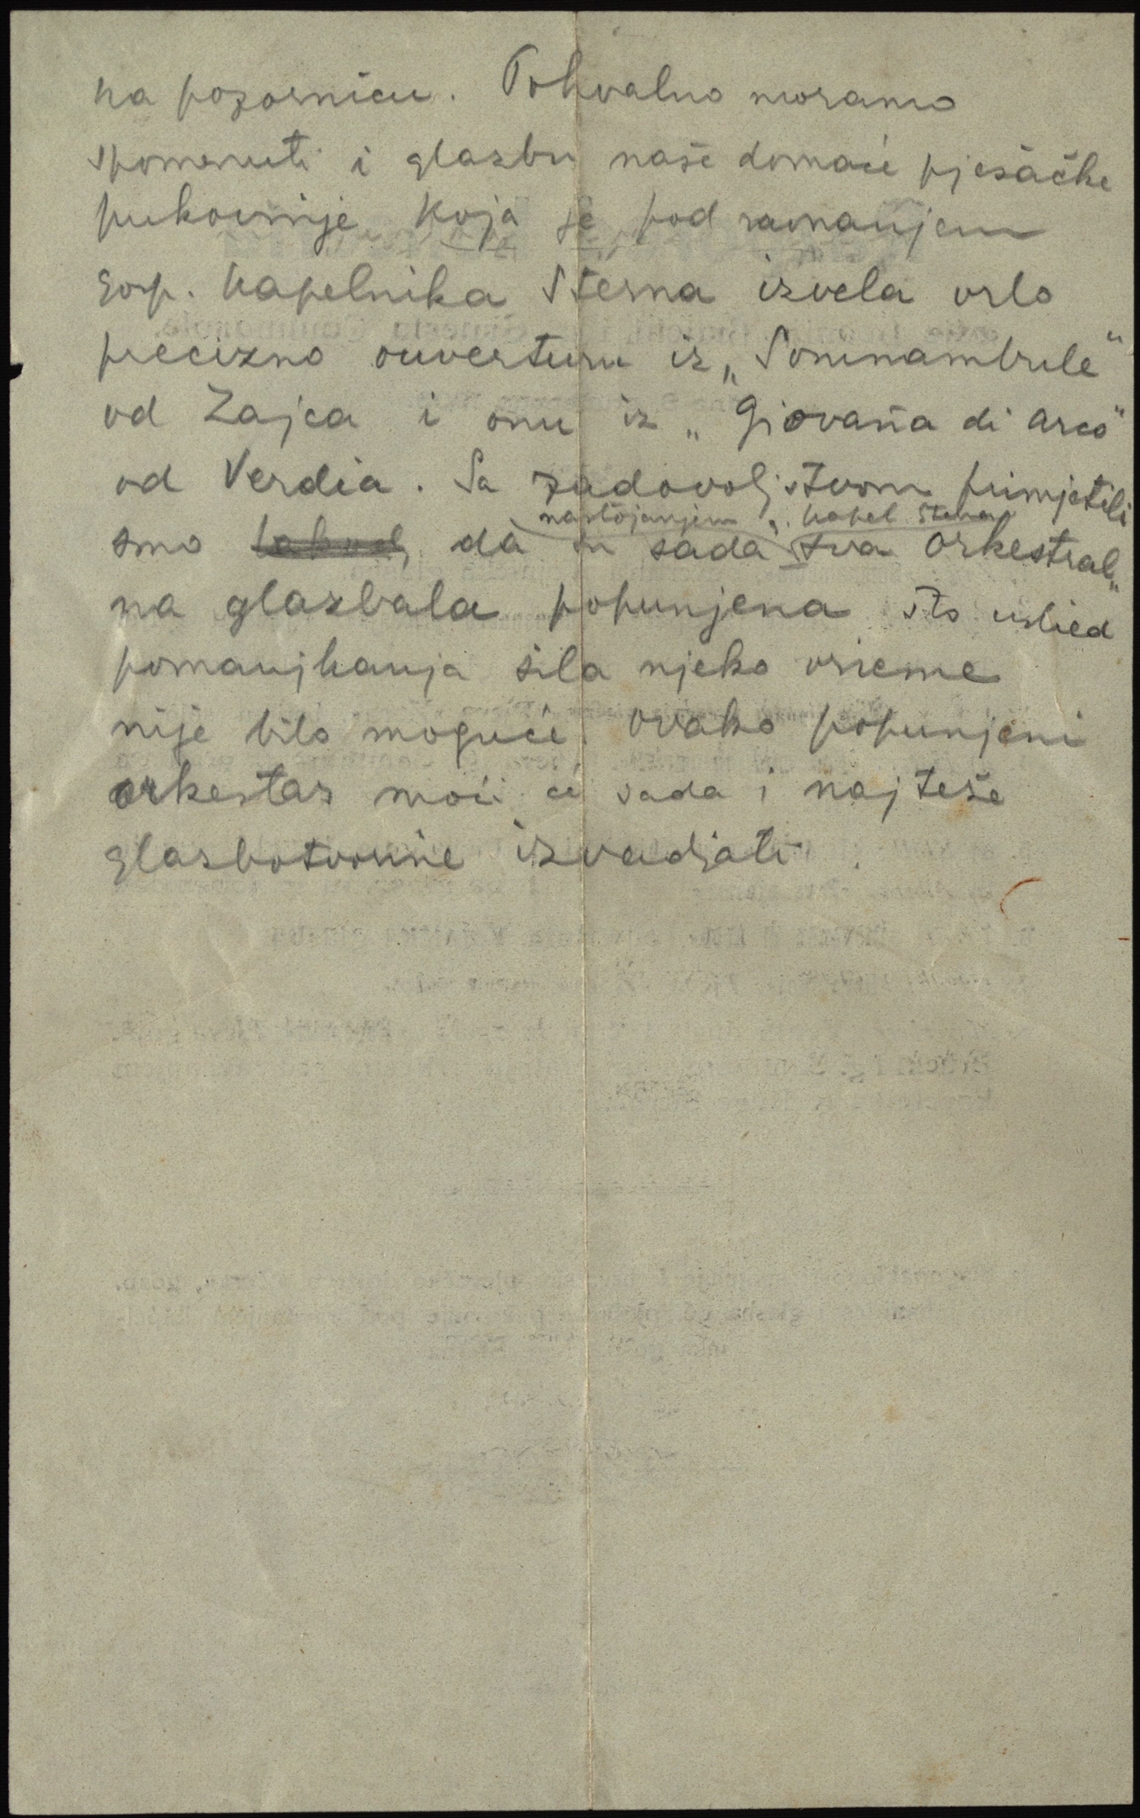 na pozornicu. Pohvalno moramo
spomenuti i glazbu naše domaće pješačke
pukovnije koja je pod ravnanjem
gosp. kapelnika Šterna izvela vrlo
precizno ouverturu iz „Somnambule“
od Zajca i onu iz „Giovaña di Arco“
od Verdia. Sa zadovoljstvom primjetili
nastojanjem g. kapel Šterna
smo da su sada sva orkestral„
na glazbala popunjena što uslied
pomanjkanja sila njeko vrieme
nije bilo moguće. Ovako popunjeni
orkestar moći će sada i najteše
glazbotvorine izvadjati.